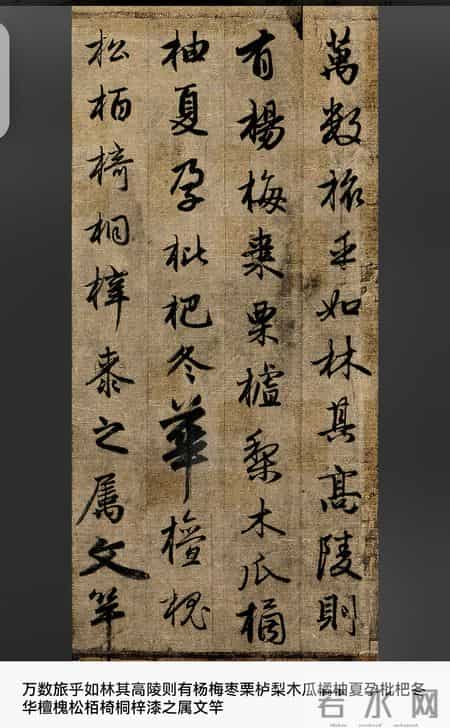 萬數旅乎如林其高陵則
有楊梅棗栗櫨梨木瓜橘
柚夏孕枇杷冬華檀槐
松栢椅桐梓桼之属文竿
万数旅乎如林其高陵则有杨梅枣栗栌梨木瓜橘柚夏孕枇杷冬
华檀槐松栢椅桐梓漆之属文竿
若水网
ruoshui.com